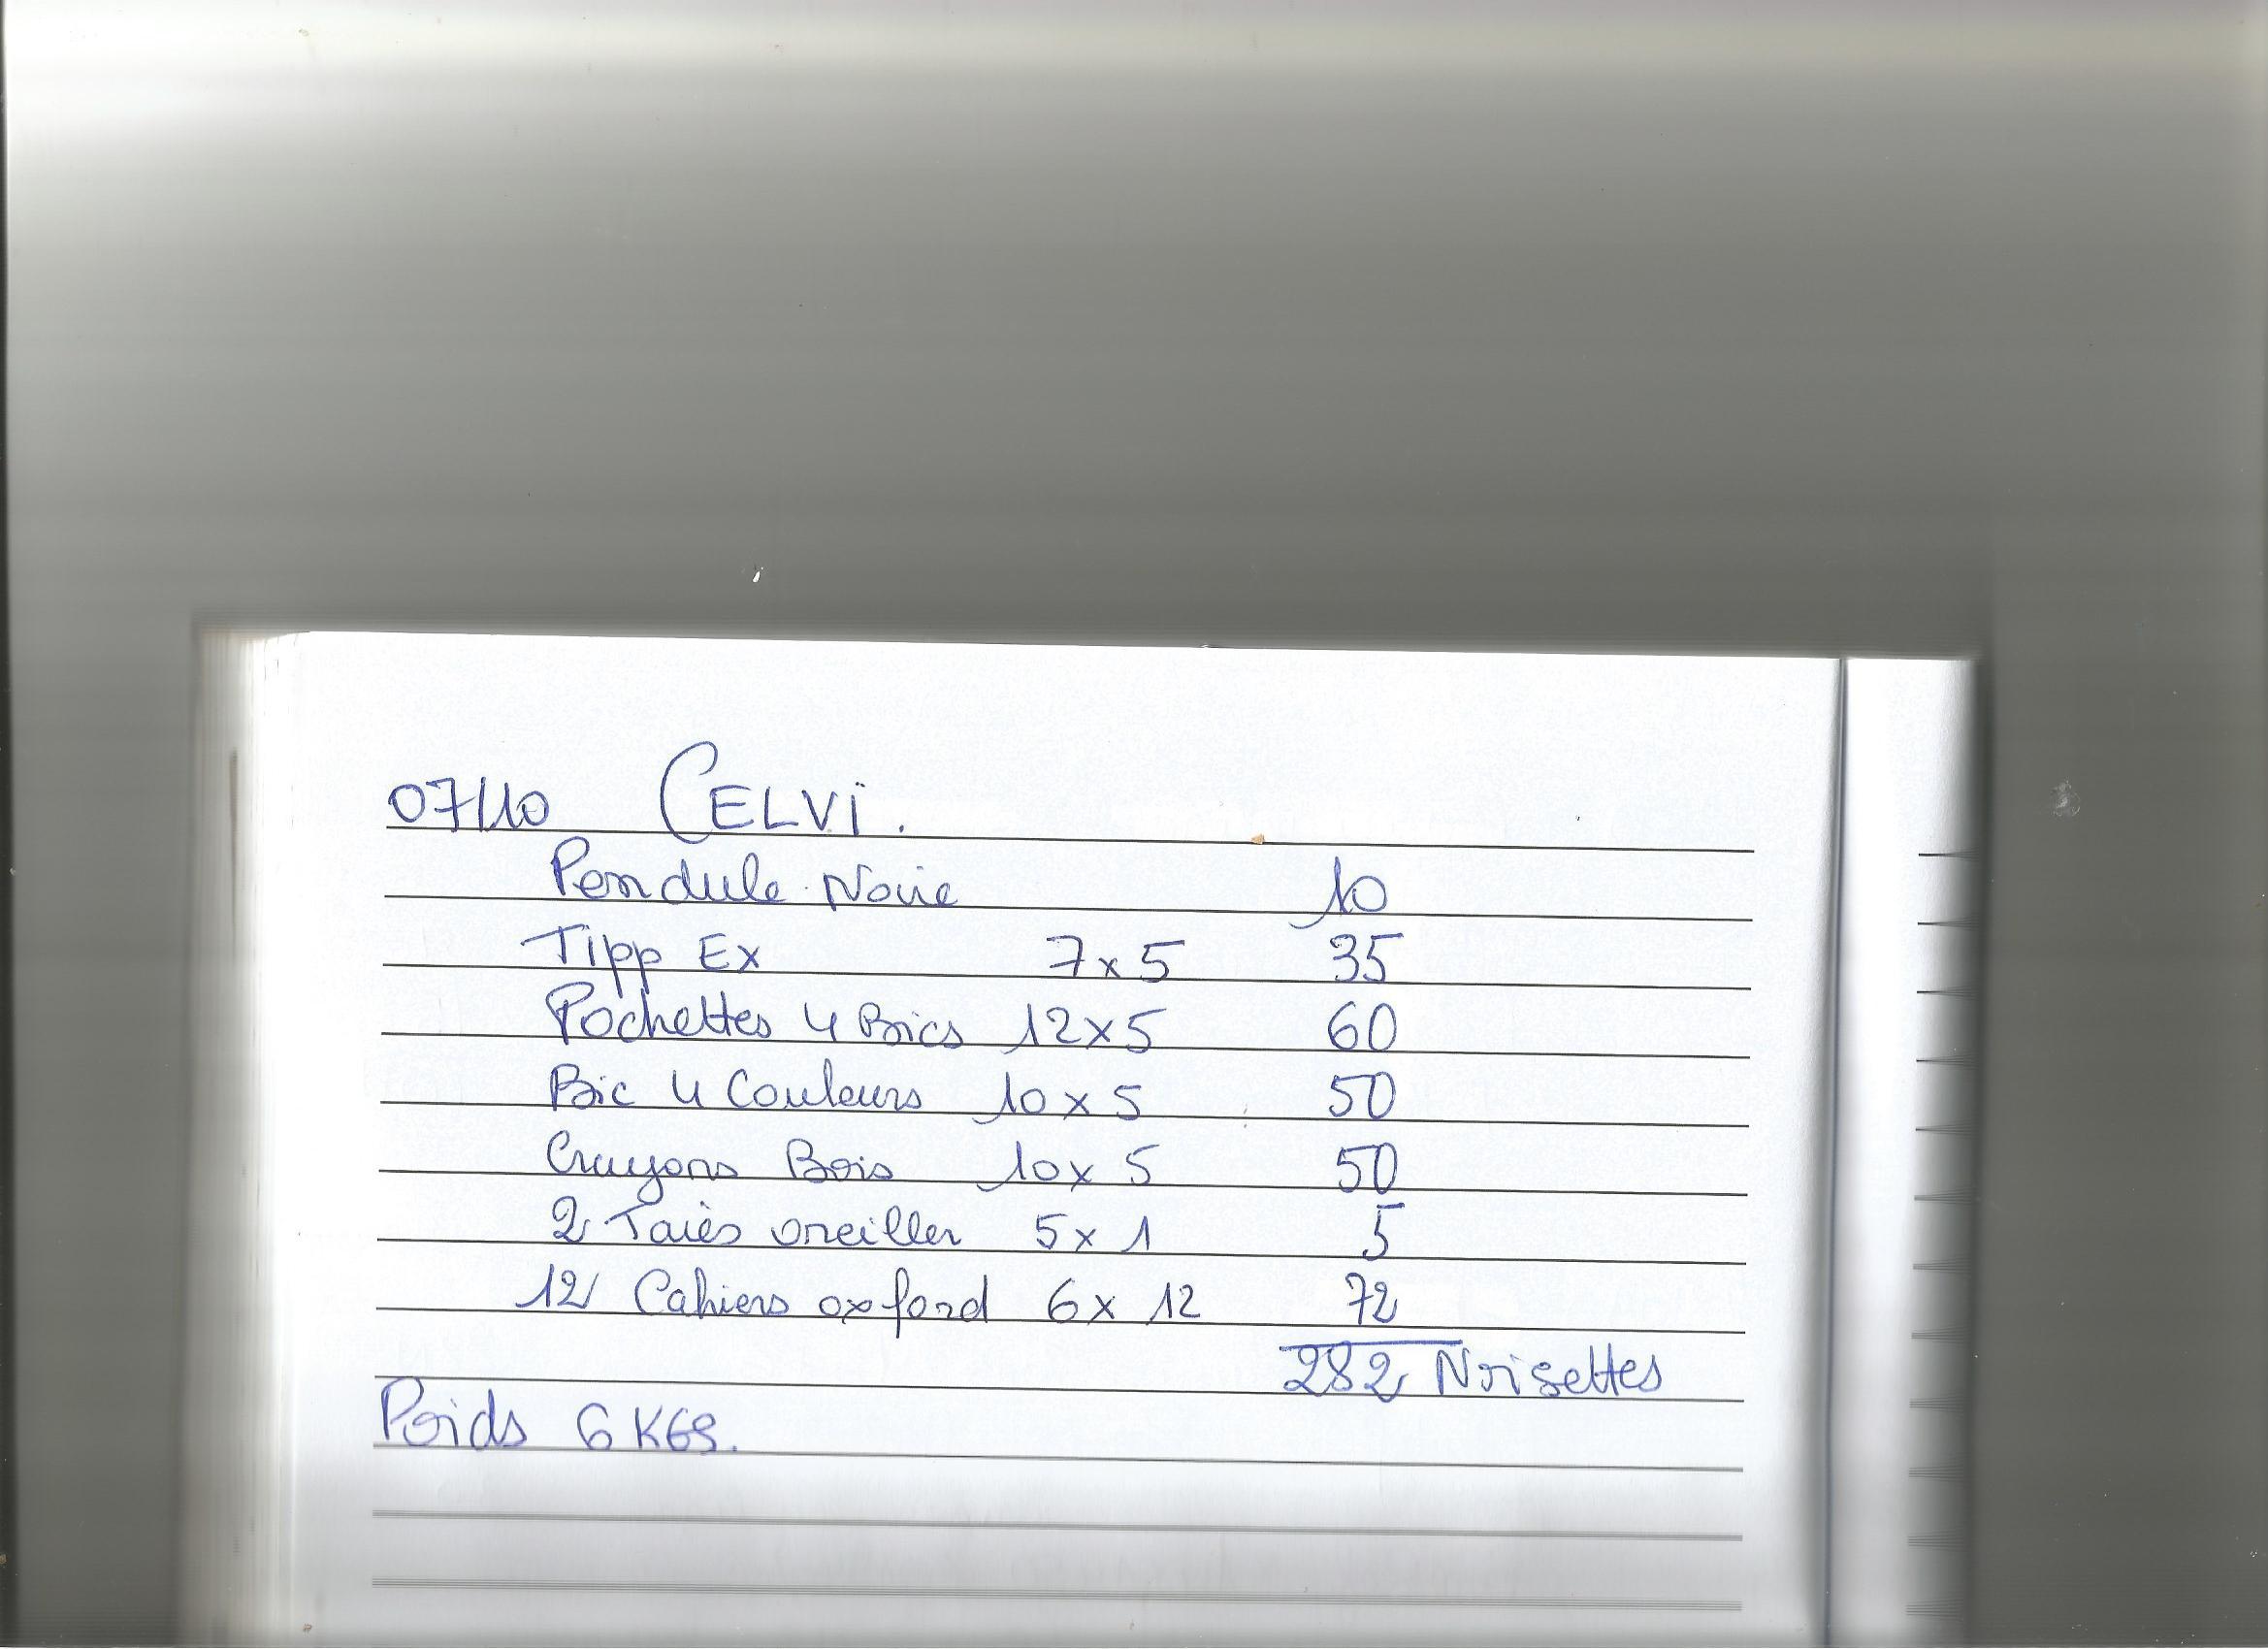 07/10 CELVI.
Pendule Noire 10
Tipp Ex 7x5 35
Pochettes 4 Bics 12x5 60
Bic 4 Couleurs 10x5 50
Crayons Bois 10x5 50
2 Taies oreiller 5x1 5
12 Cahiers oxford 6x12 72
282 Noisettes
Poids 6 KGS.